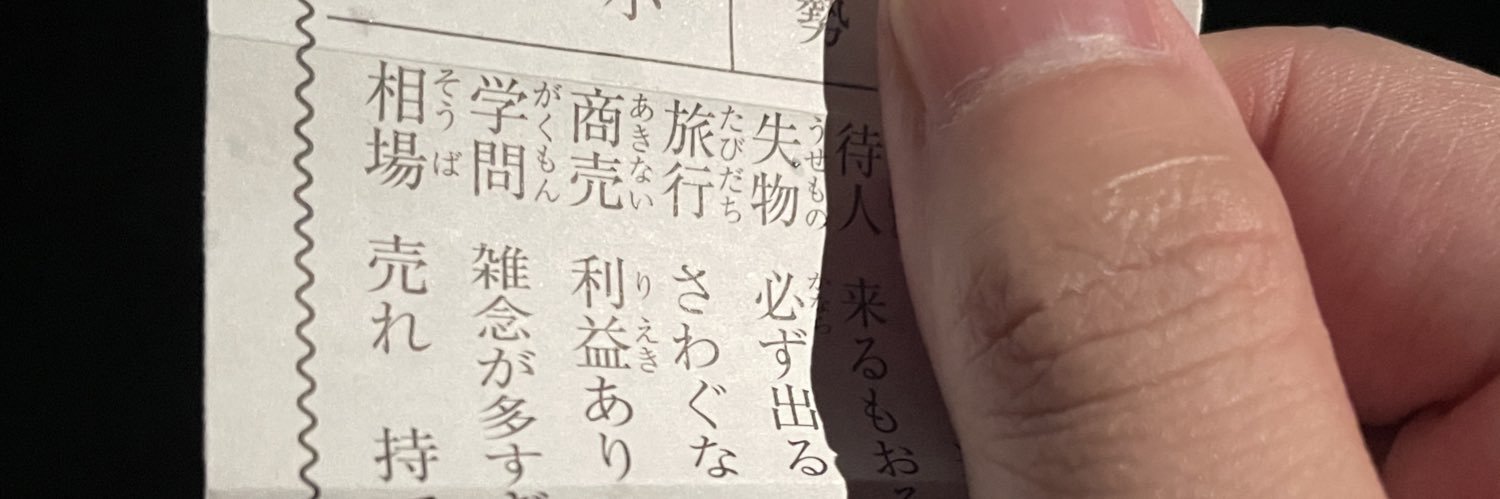 勢
待人 来るもお
失物 必ず出る
旅行 さわぐな
商売 利益あり
学問 雑念が多す
相場 売れ 持